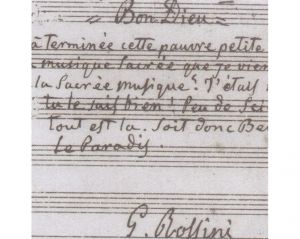 = Bon Dieu =
à terminée cette pauvre petite
musique sacrée que je vien
la Sacrée musique? J'étais
tu le sais bien! Peu de sci
tout est là. Soit donc Be
le Paradis.
G. Rossini